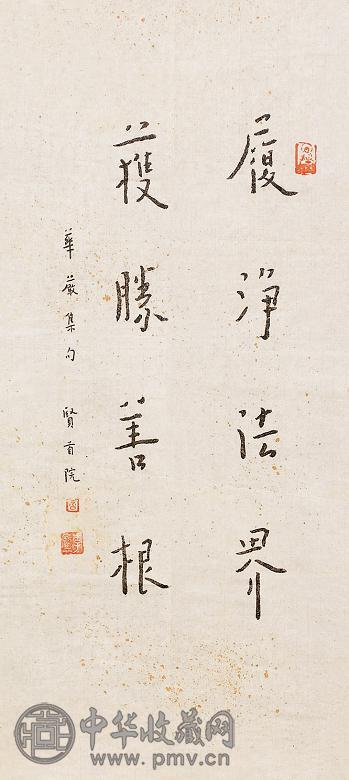 履淨法界
獲勝善根
華嚴集句 賢首院
中华收藏网
www.pmv.cn